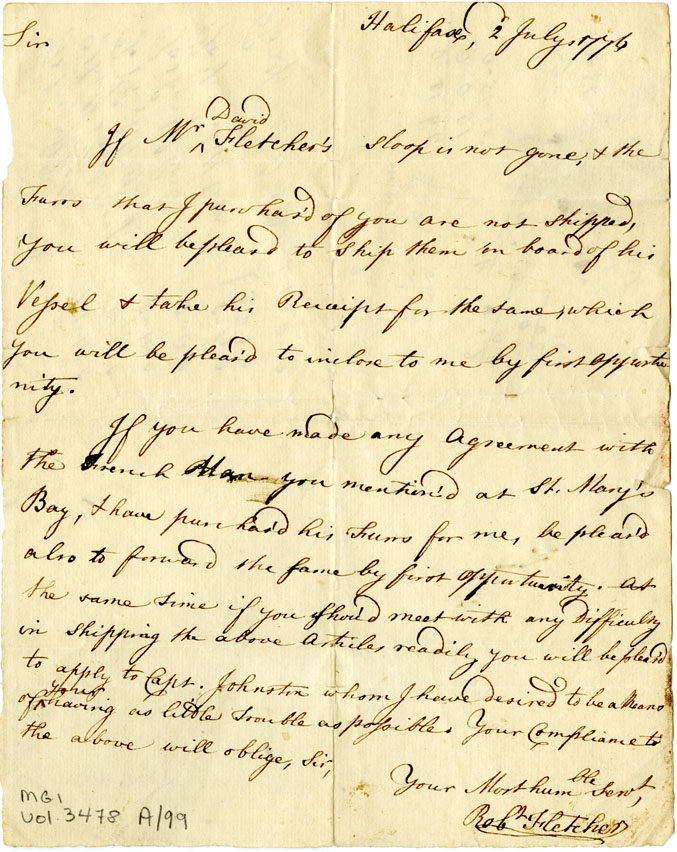 Halifax, 2d July, 1776
Sir
David
If Mr ^ Fletcher's sloop is not gone, & the
Furrs that I purchas'd of you are not shipped,
You will be pleas'd to ship them on board of his
Vessel & take his Receipt for the same, which
you will be pleas'd to inclose to me by first opportu
nity.
If you have made any Agreement with
the French Man you mention'd at St. Mary's
Bay, & have purchas'd his Furrs for me, be pleas'd
also to forward the same by first opportunity. At
the same Time if you shou'd meet with any Difficulty
in shipping the above Articles readily you will be pleas'd
to apply to Capt. Johnston whom I have desired to be a Means
your
of ^ having as little Trouble as possible. Your Compliance to
the above will oblige, Sir,
Your Most humble Servt,
Robt Fletcher
MG1
Vol. 3478 A/99